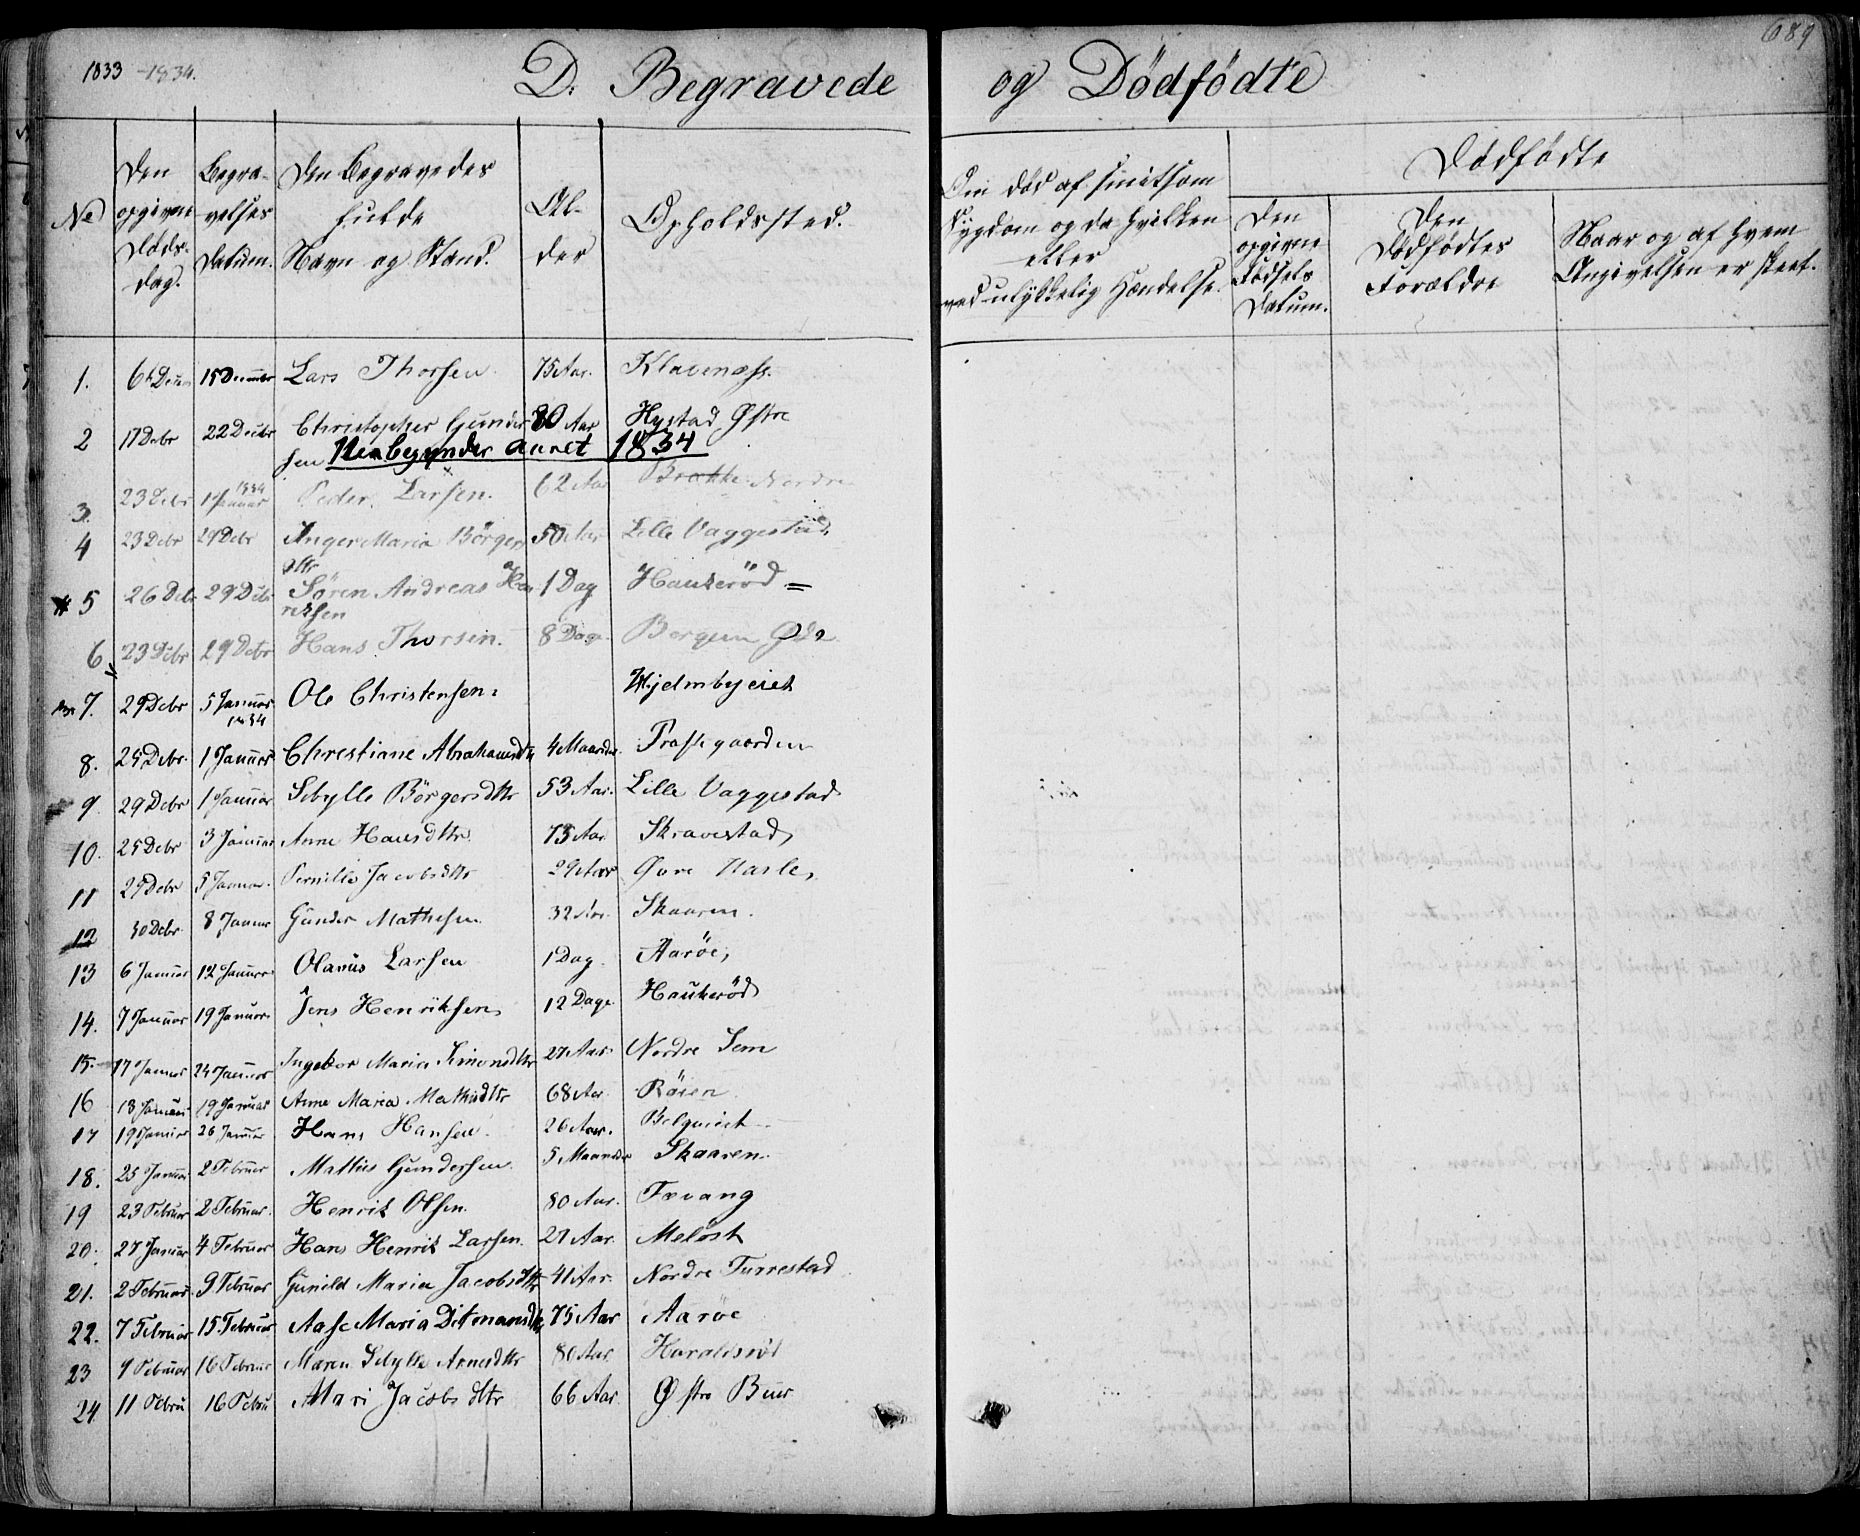 1833 -1834.
D. Begravede og Dödfödte
689
No
Den opgivne Döds- dag.
Begra- velses Datum.
Den Begravedes fulde Navn og Stand.
Al- der
Opholdssted.
Om död af smitsom Sygdom og da hvilken eller ved ulykkelig Hændelse.
Dödfödte
Den opgivne Födsels Datum.
Den Dödfödtes Forældre
Naar og af hvem Angivelsen er skeet.
1. 6te Decem 15 Decembr Lars Thorsen 75 Aar. Klavenæss.
2 17 Debr 22 Decbr Christopher Gunder 80 Aar Hystad Østre
sen Her begynder aaret 1834
3. 23 Debr 1 Januar 1834 Peder Larsen. 62 Aar Brække Nordre
4 23 Debr 29 Debr Inger Maria Börgers 50 Aar Lille Vaggestad
dttr
5 26 Debr 29 Debr Sören Andreas Hen 1 Dag Haukeröd =
riksen
6 23 Debr 29 Debr Hans Thorsen. 8 Dage. Bergem
7. 29 Debr 5 Januar 1834 Ole Christensen. Hjelmbyeiet
8. 25 Debr. 1 Januar Chrestiane Abrahamsdtr 4 Maaneder Præstegaarden
9. 29 Debr 1 Januar Sibylle Börgersdttr 53 Aar. Lille Vaggestad
10. 25 Debr 3 Januar Anne Hansdttr. 73 Aar Skravestad
11 29 Debr 5 Januar. Pernille Jacobsdttr 29 Aar Øvre Hasle,
12 30 Debr 8 Januar Gunder Mathesen. 32 Aar. Skaaren.
13 6 Januar 12 Januar. Olavus Larsen 1 Dag. Aaröe,
14. 7 Januar 19 Januar. Jens Henriksen, 12 Dage Haukeröd
15. 17 Januar 24 Januar Ingebor Maria Simonsdttr 27 Aar. Nordre Sem
16 13 Januar 19 Januar Anne Maria Mathisdttr 68 Aar. Röien
17 19 Januar 26 Januar Hans Hansen. 26 Aar.
18. 25 Januar 2 Februar Mathis Gundersen. 5 Maaneder Skaaren.
19 23 Februar 2 Februar. Henrik Olsen. 80 Aar. Fævang
20. 27 Januar 4 Februar Hans Henrik Larsen. 27 Aar. Melöst
21. 2 Februar. 9 Februar Gunild Maria Jacobsdttr 41 Aar. Nordre Furrestad
22. 7 Februar 15 Februar Aase Maria Ditmansdtr 75 Aar Aaröe
23 9 Februar 16 Februar Maren Sibylle Arnesdttr 80 Aar. Haraldsröd
24 11 Febru 16 Febru Mari Jacobsdttr 66 Aar Østre Buer